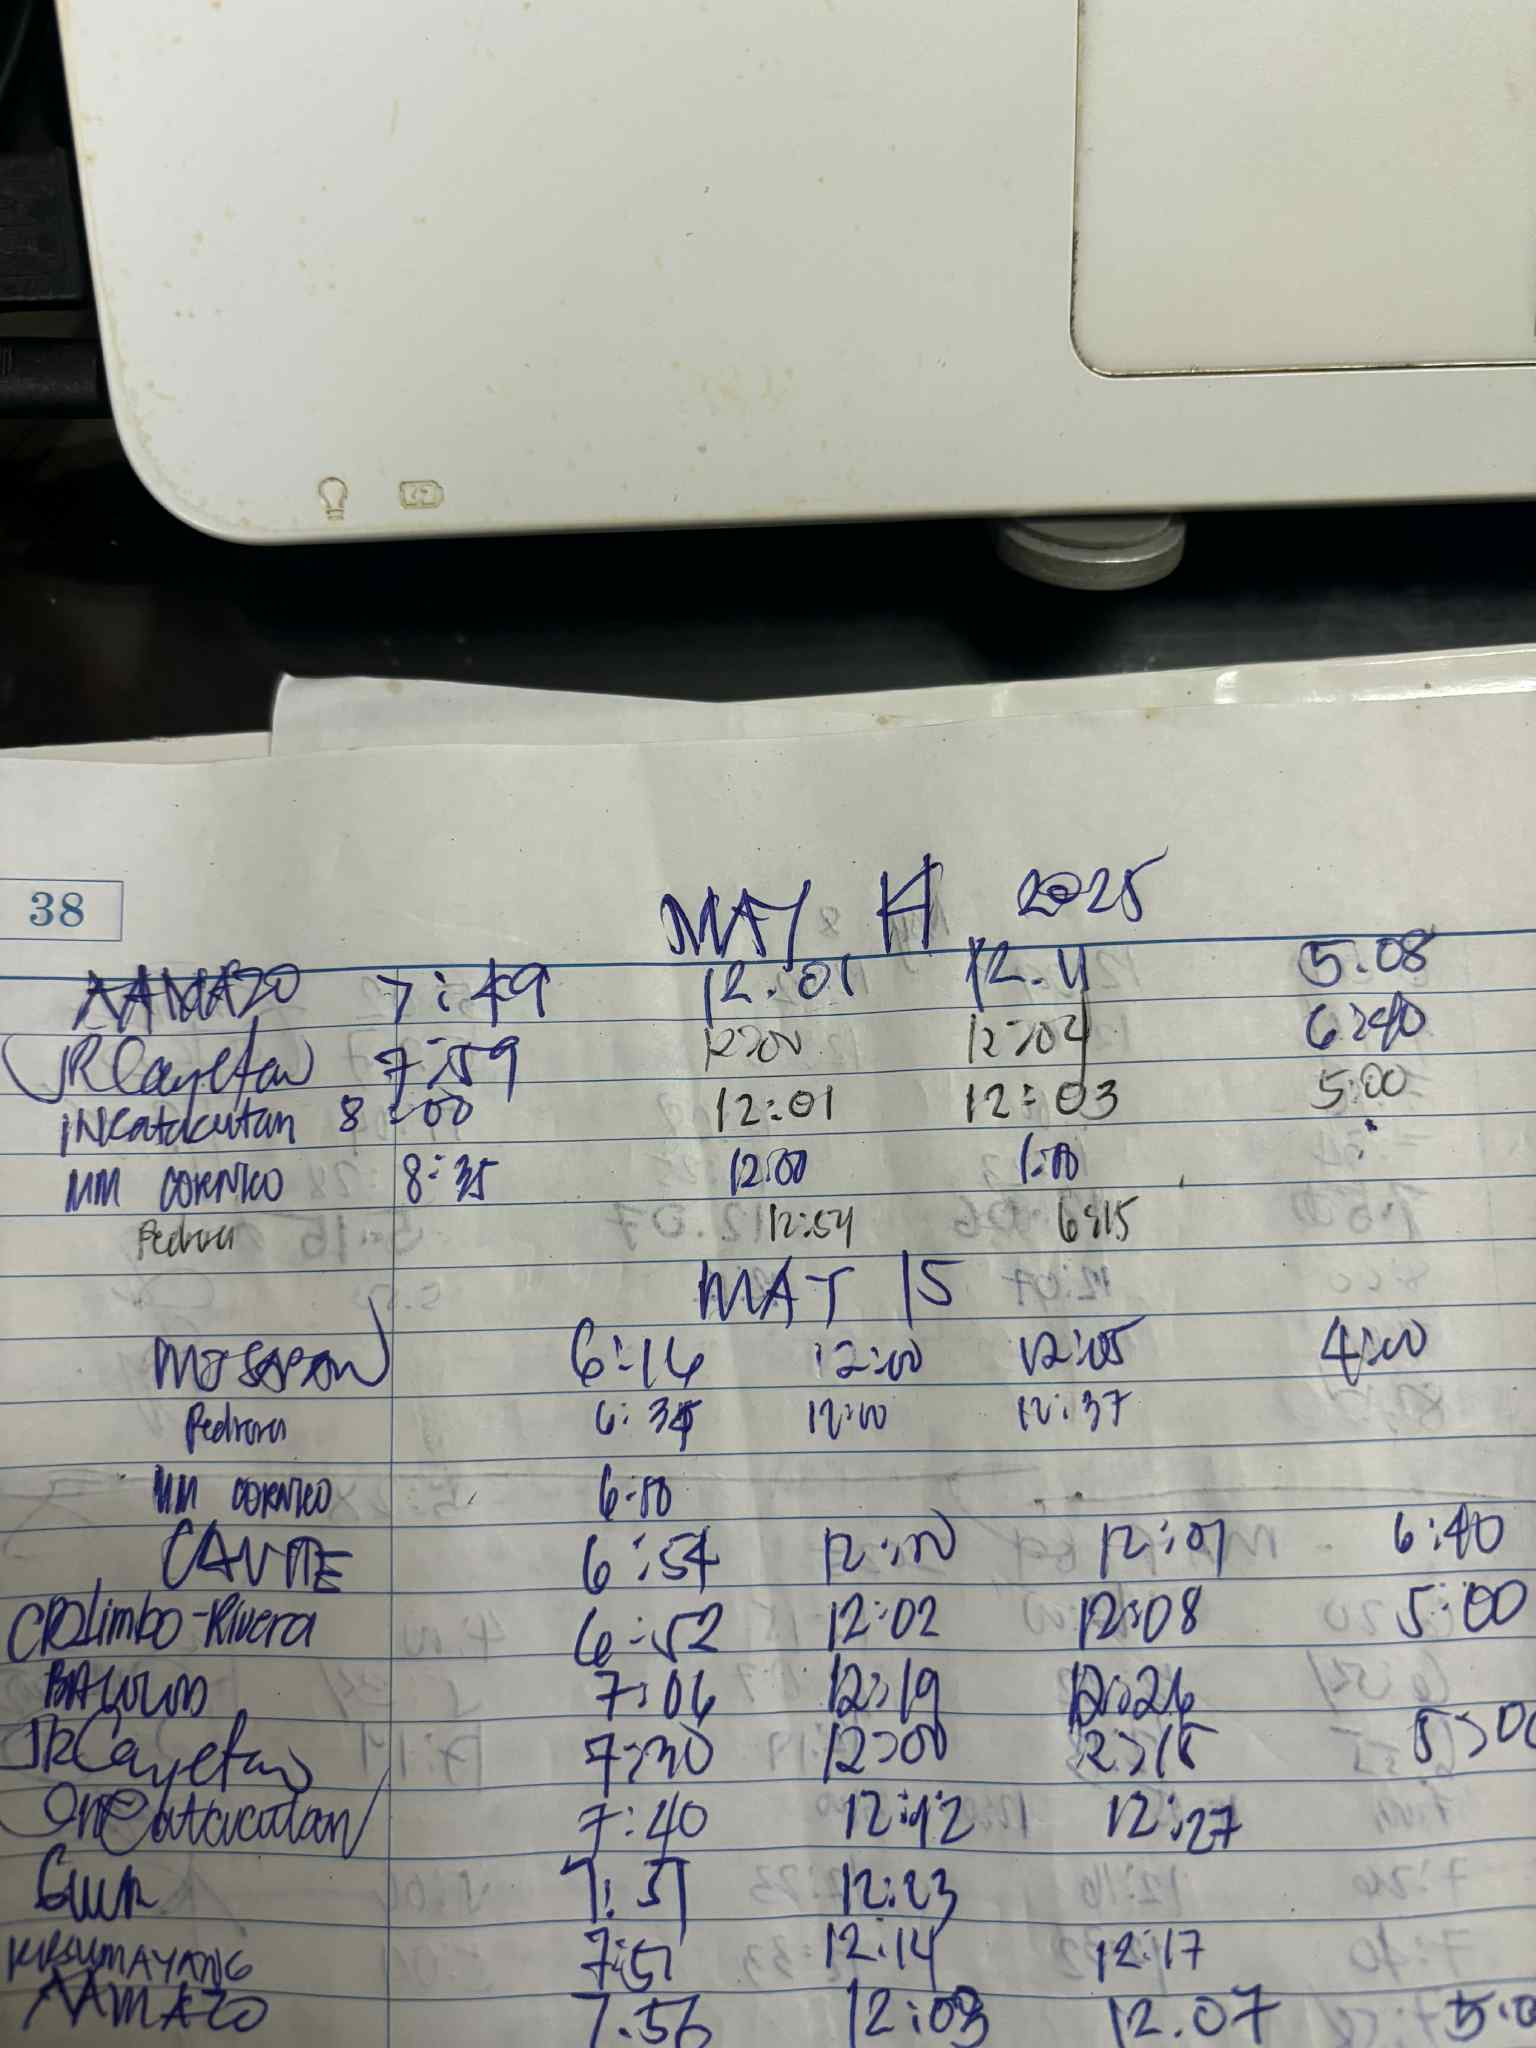 38
MAY 14 2025
AAMAZO 7:49 12:01 12.11 5.08
JRCayetan 7:59 12:00 12:04 6:40
Catacutan 8:00 12:01 12:03 5:00
MM CORNICO 8:35 12:00 1:00
Pedrora 12:54 6:15
MAY 15
6:16 12:00 12:05 4:00
Pedrora 6:35 12:00 12:37
MM CORNICO 6:50
CAVITE 6:54 12:00 12:01 6:40
CROlimbo-Rivera 6:52 12:02 12:08 5:00
7:06 12:19 12:26
JRCayetan 7:30 12:00 12:15 5:00
Catacutan 7:40 12:12 12:27
7:51 12:23
7:51 12:14 12:17
AAMAZO 7.56 12:03 12.07